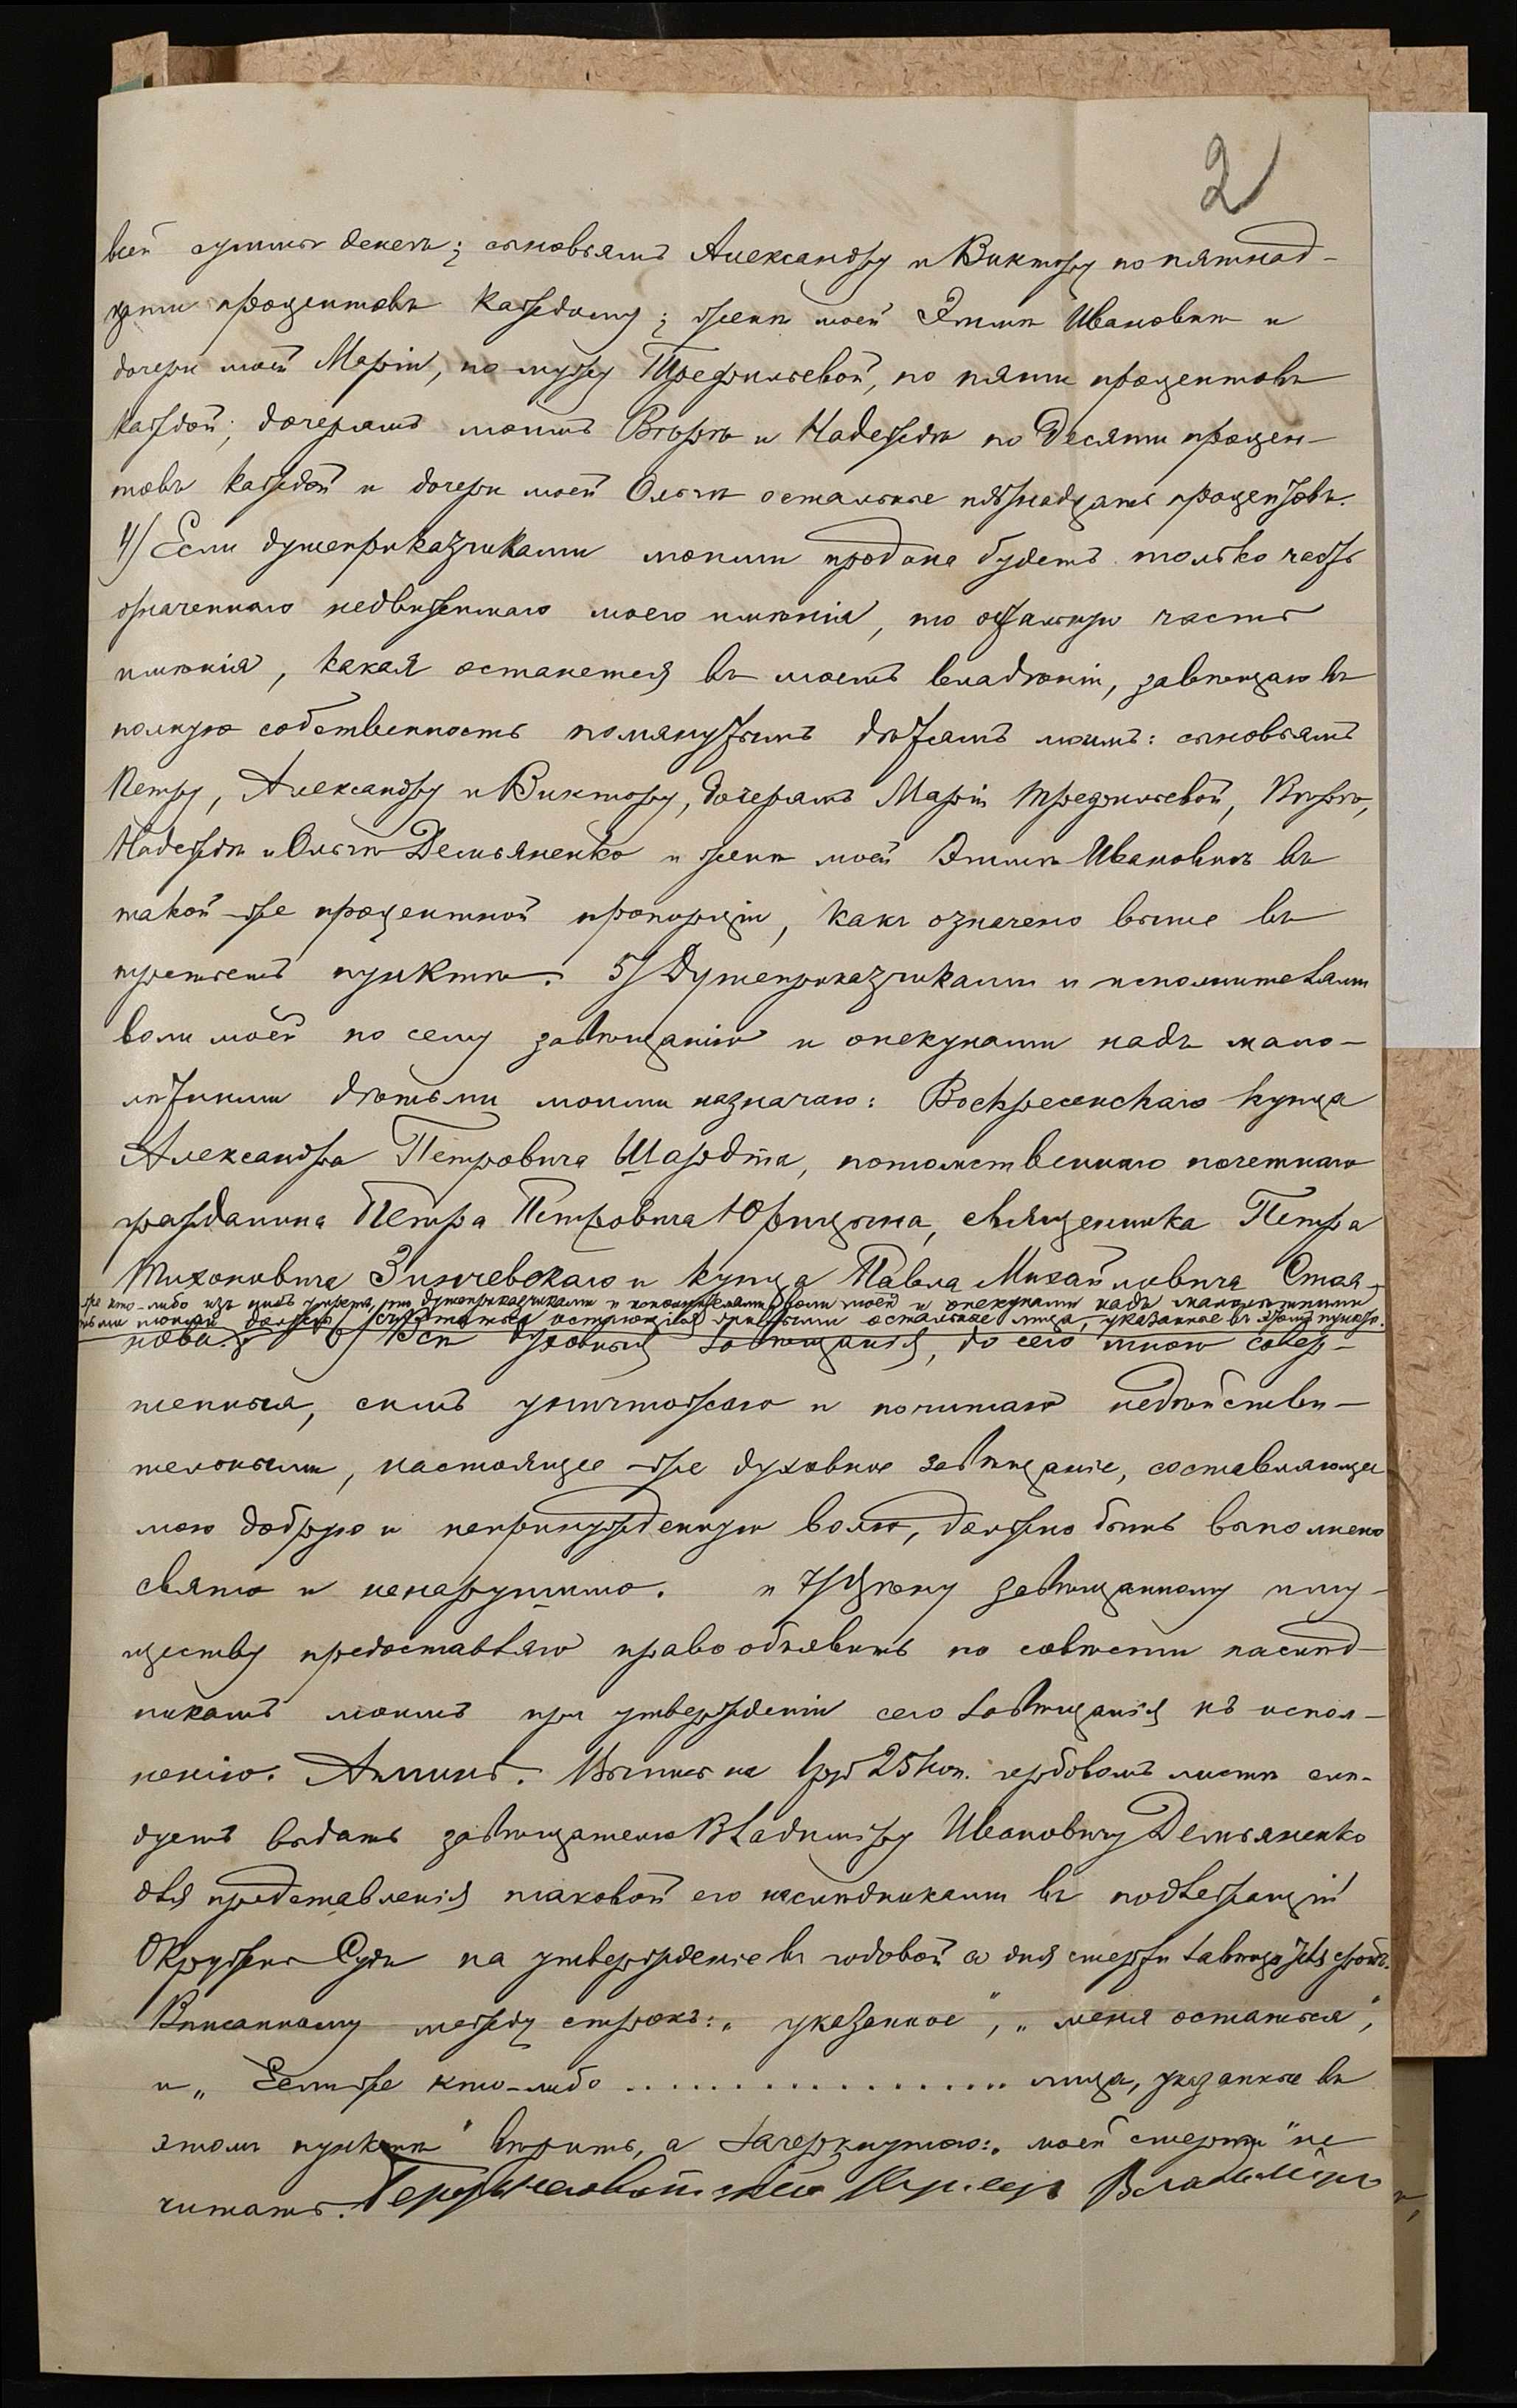 2
всей суммы денегъ; сыновьямъ Александру и Виктору по пятнад-
цати процентовъ каждому; женѣ моей Эмми Ивановнѣ и
дочери моей Маріи, по мужу Трефильевой, по пяти процентовъ
каждой; дочерямъ моимъ Вѣрѣ и Надеждѣ по десяти процен-
товъ каждой и дочери моей Ольгѣ остальные пятнадцать процентовъ.
4) Если душеприказчиками моими продана будетъ только часть
означеннаго недвижимаго моего имѣнія, то остальную часть
имѣнія, какая останется въ моемъ владѣніи, завѣщаю въ
полную собственность помянутымъ дѣтямъ моимъ: сыновьямъ
Петру, Александру и Виктору, дочерямъ Маріи Трефильевой, Вѣрѣ,
Надеждѣ и Ольгѣ Демьяненко и женѣ моей Эмми Ивановнѣ въ
такой-же процентной пропорціи, какъ означено выше въ
третьемъ пунктѣ. 5) Душеприказчиками и исполнителями
воли моей по сему завѣщанію и опекунами надъ мало-
лѣтними дѣтьми моими назначаю: Воскресенскаго купца
Александра Петровича Шардта, потомственнаго почетнаго
гражданина Петра Петровича Юрицына, священника Петра
Тихоновича Зинчевскаго и купца Павла Михайловича Стая-
же кто-либо изъ нихъ умретъ, то душеприказчиками и исполнителями воли моей и опекунами надъ малолѣтними
дѣтьми моими должны считаться остающіеся живыми остальные лица, указанные въ этомъ пунктѣ.
нова. 6) Всѣ духовныя завѣщанія, до сего мною совер-
шенныя, симъ уничтожаю и почитаю недѣйстви-
тельными, настоящее-же духовное завѣщаніе, составляющее
мою добрую и непринужденную волю, должно быть выполнено
свято и ненарушимо. и 7) Цѣну завѣщанному иму-
ществу предоставляю право объявить по совѣсти наслѣд-
никамъ моимъ при утвержденіи сего завѣщанія къ испол-
ненію. Аминь. Выпись на 1 руб 25 коп. гербовомъ листѣ слѣ-
дуетъ выдать завѣщателю Владиміру Ивановичу Демьяненко
для представленія таковой его наслѣдниками въ подлежащій
Окружный Судъ на утвержденіе въ годовой со дня смерти завѣщателя срокъ.
Вписанному между строкъ: „указанное", „меня остаться",
и „Если же кто-либо .................. лица, указанные въ
этомъ пунктѣ" вѣрить, а зачеркнутое: „моей смерти" не
читать. Купецъ Владиміръ